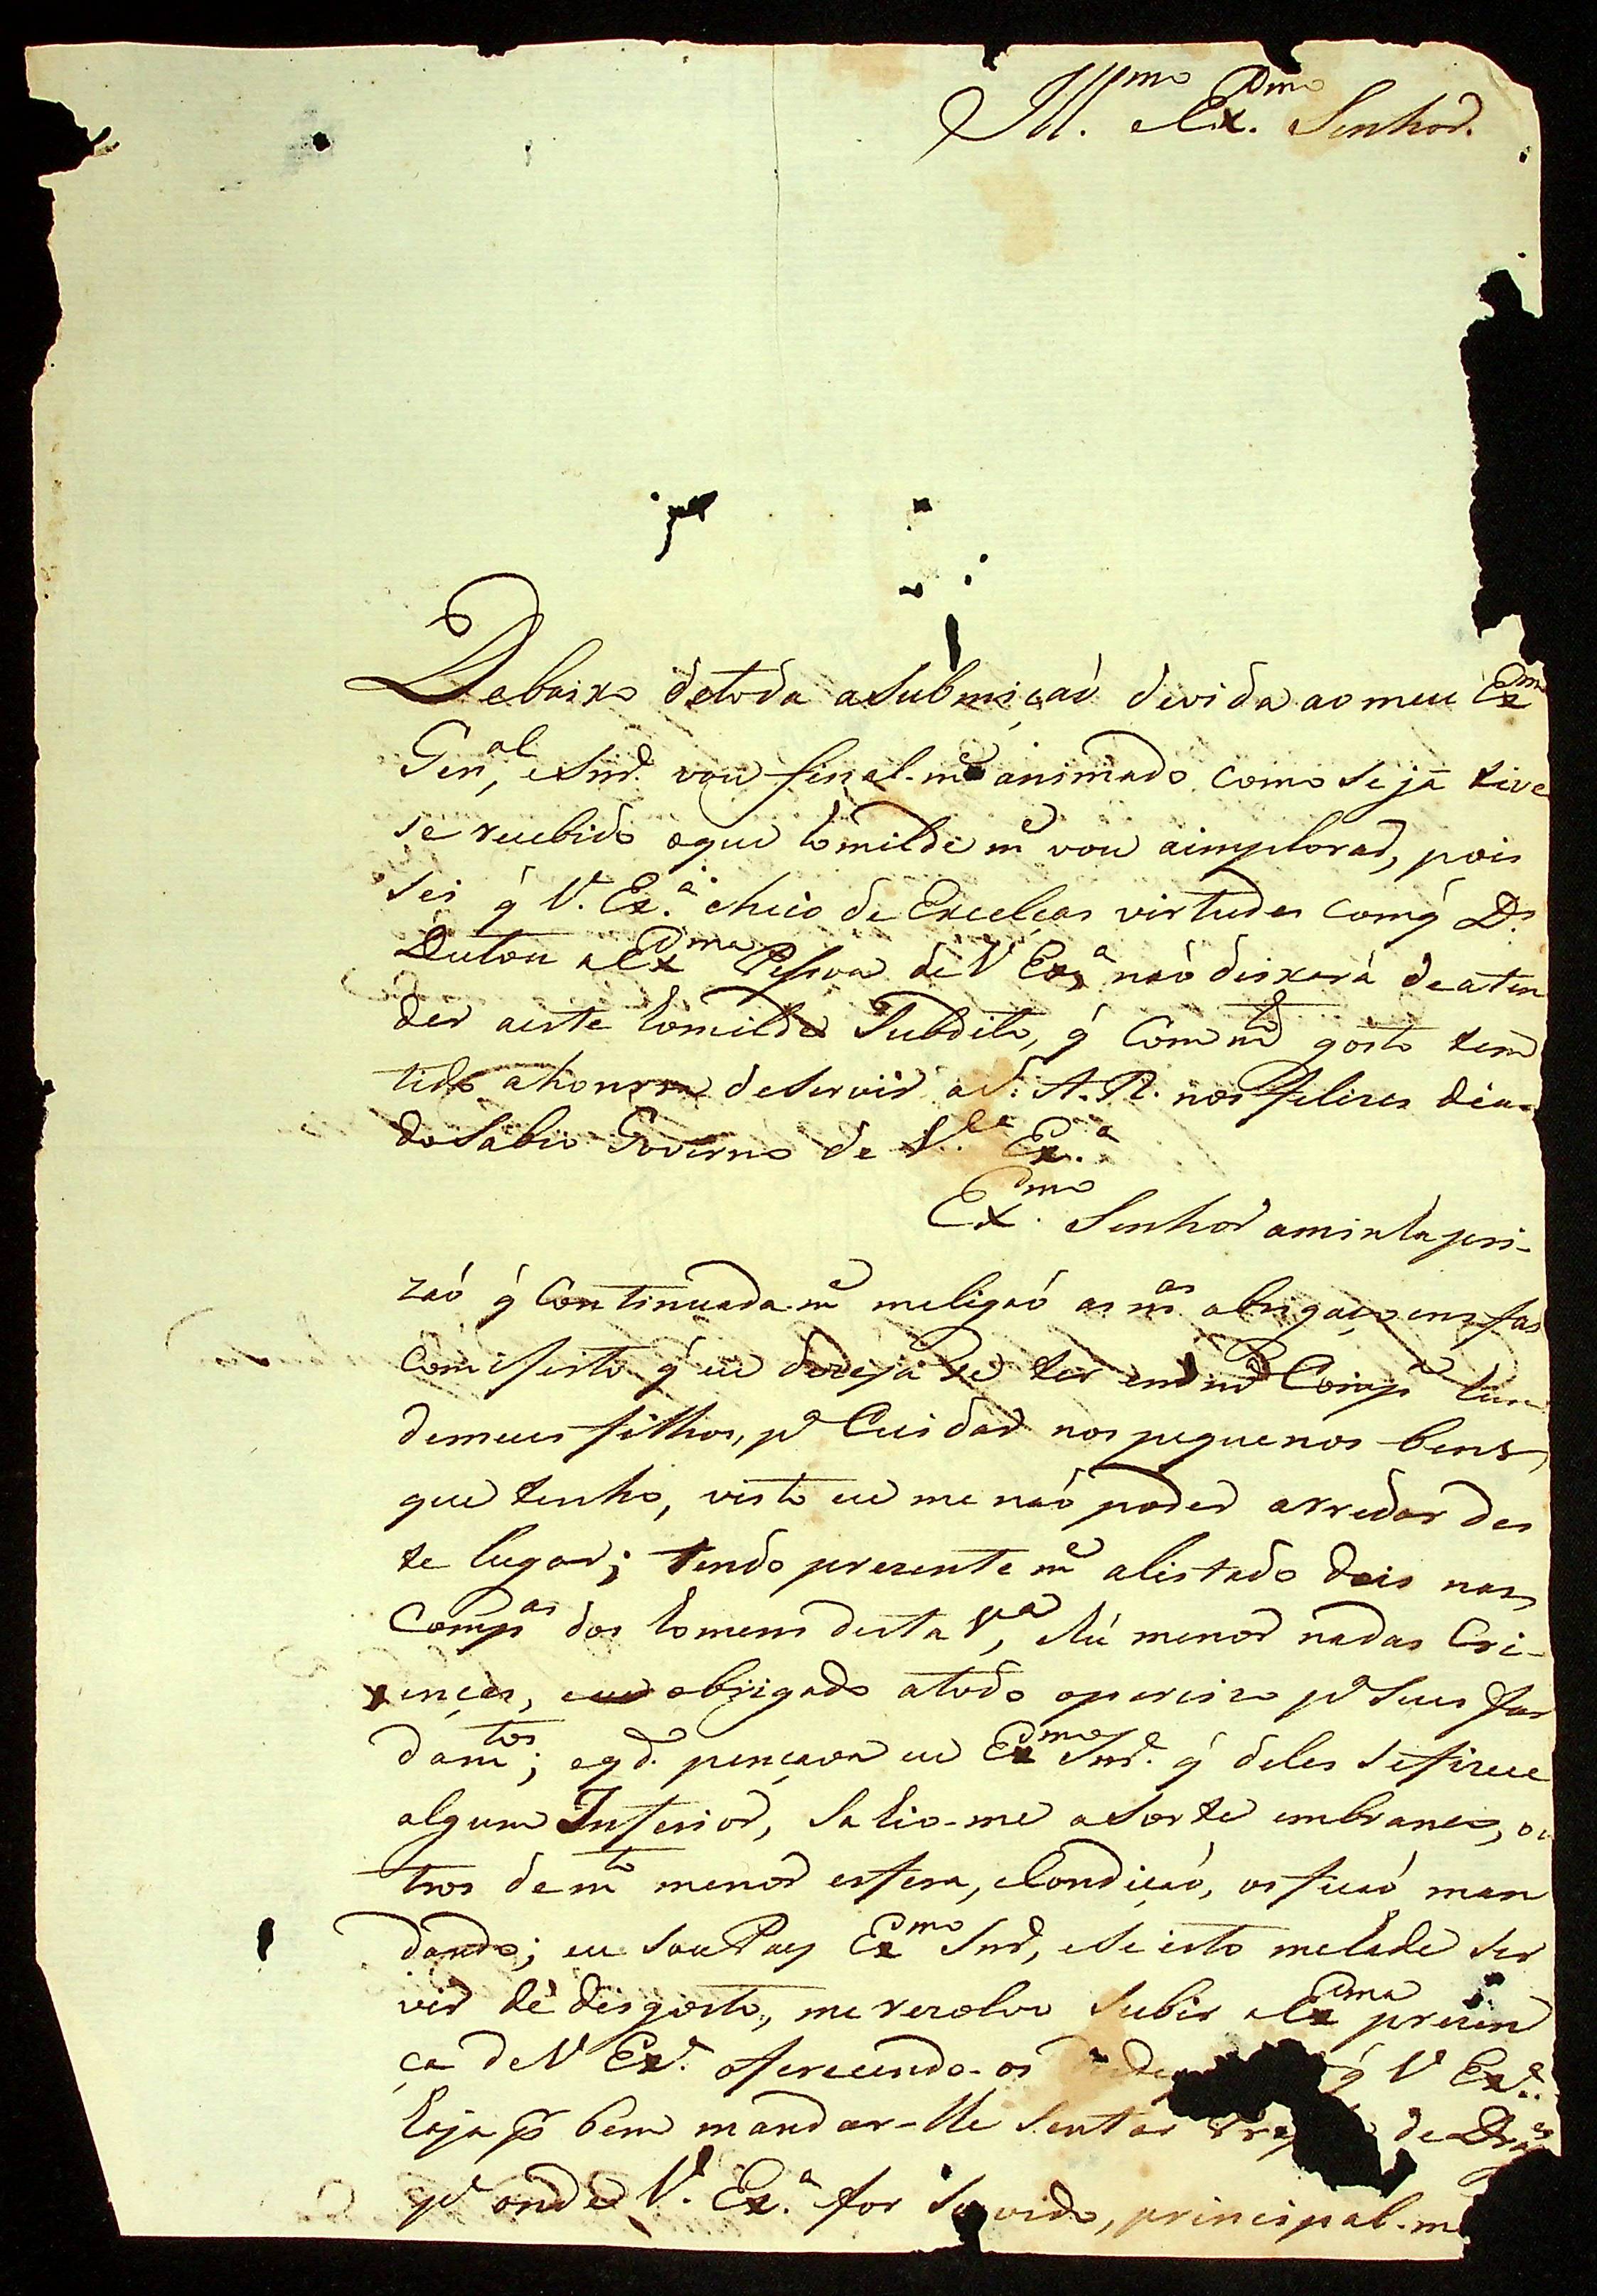 Ill.mo e Ex.mo Senhor.
Debaixo detoda aSubmiçaõ devida ao meu Exmo
Gen,al eSnr. vou final-me animado como Se já tive
se recebido oque homilde me vou aimplorar, pois
Sei q̃ V. Ex.a cheio de Excelças virtudes comq̃ Ds
Dutou aExma Pessoa de V Exa naõ deixará de aten
der aeste homilde Subdito, q̃ Com mto gosto tem
tido ahonra deServir aS. A. R. nos felices dias
do Sabio Governo de V. Ex.a
Ex.mo Senhor aminha pri-
zaó q̃ Continuada.me meligaó as mas obrigaçoens faz
Comisesto q̃ eu dezejáse ter em ma Compa hum
demeus filhos, pa Cuidar nos pequenos bens,
que tenho, visto eu me naó poder arredar des
te lugar; tendo prezente me alistado dois nas
Compas dos homens desta Va, ehú menor nadas Cri-
xenças, obrigado atodo opereizo pa Seus far
damtos; eqdo pençava eu Exmo Snr. q̃ deles Sefizece
algum Inferior, Sahio-me aSorte embranco, ou
tros demto menor esfera, eCondiçaó, os ficaó man
dando; eu Sou Pay Exmo Snr, eSe isto mehade Ser
vir de desgosto, me rezolvo Subir aExma prezen
ça deV Exa. oferecendo-os q̃ V Exa.
haja pr bem mandar-lhe Sentar de
pa onde V. Ex.a for Servido, principal-me